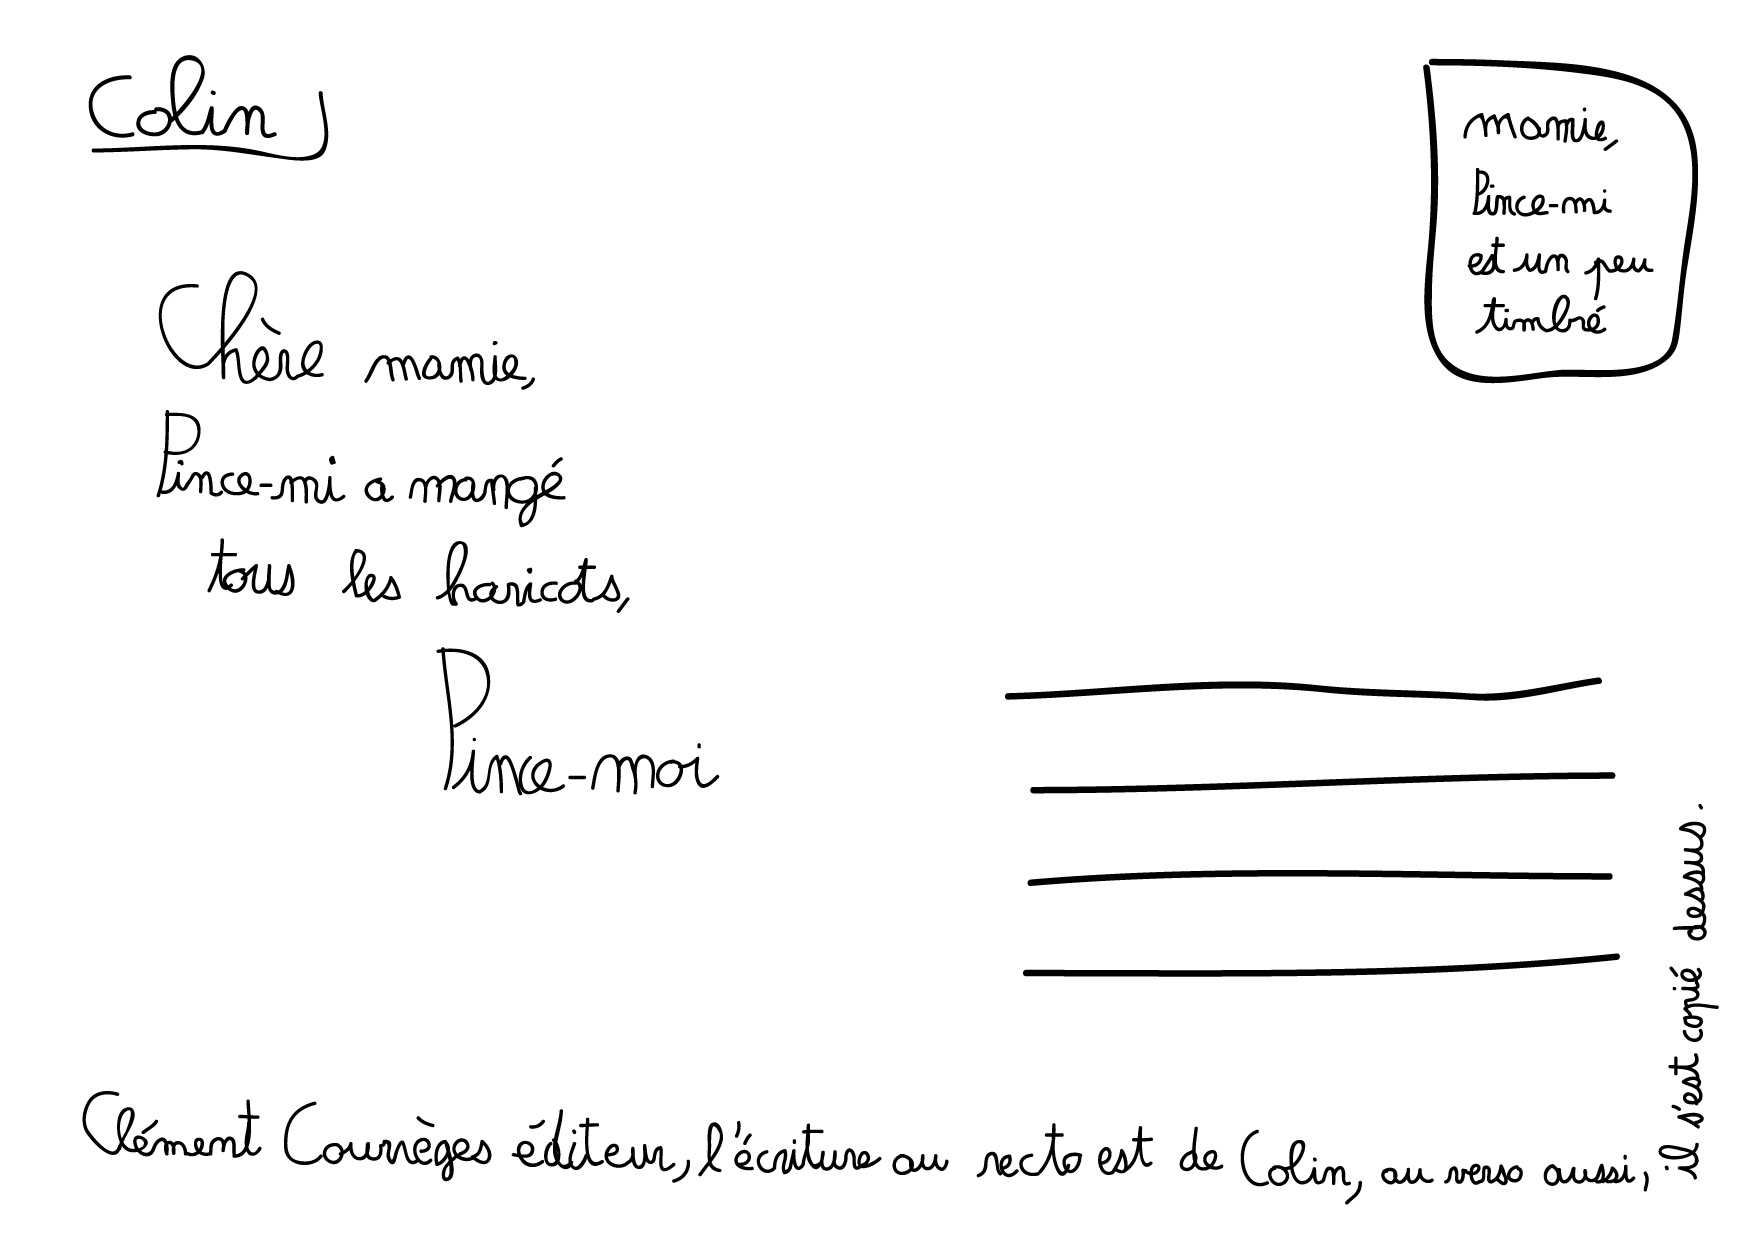 Colin
mamie,
Pince-mi
est un peu
timbré
Chère mamie,
Pince-mi a mangé
tous les haricots,
Pince-moi
Clément Courrèges éditeur, l'écriture au recto est de Colin, au verso aussi,
il s'est copié dessus.